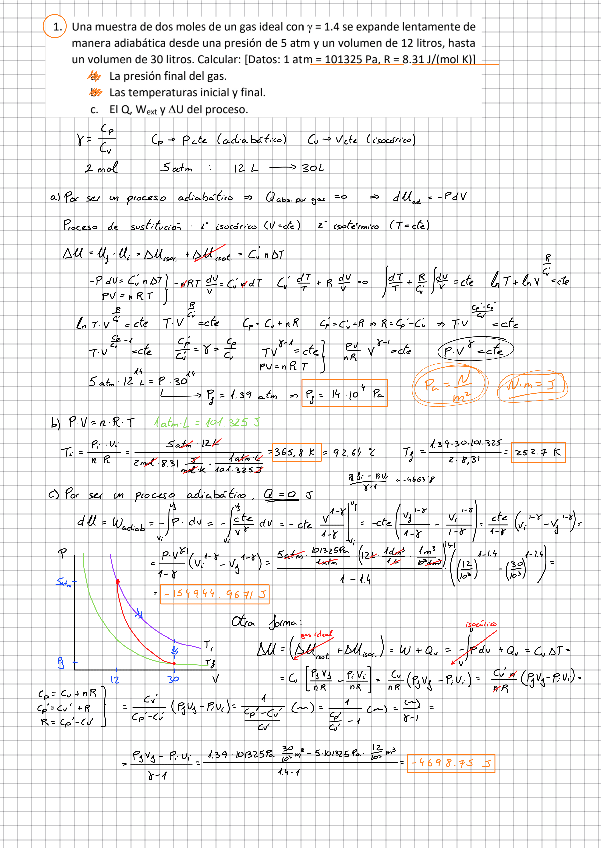 1. Una muestra de dos moles de un gas ideal con γ = 1.4 se expande lentamente de
manera adiabática desde una presión de 5 atm y un volumen de 12 litros, hasta
un volumen de 30 litros. Calcular: [Datos: 1 atm = 101325 Pa, R = 8.31 J/(mol K)]
La presión final del gas.
Las temperaturas inicial y final.
c. El Q, Wext y ΔU del proceso.
γ = Cp/Cv Cp → Pcte (adiabático) Cv → Vcte (isocórico)
2 mol 5 atm : 12 L → 30L
a) Por ser un proceso adiabático ⇒ Qabs por gas = 0 ⇒ dUad = -PdV
Proceso de sustitución: 1º isocórico (V=cte) 2º isotérmico (T=cte)
ΔU = Uf - Ui = ΔUisoc + ΔUisot = Cv' n ΔT
-P dV = Cv' n ΔT
PV = n R T
-nRT dV/V = Cv' n dT Cv' dT/T + R dV/V = 0 ∫dT/T + R/Cv' ∫dV/V = cte ln T + ln V^(R/Cv') = cte
ln T·V^(R/Cv') = cte T·V^(R/Cv') = cte Cp = Cv + nR Cp' = Cv' + R ⇒ R = Cp' - Cv' ⇒ T·V^((Cp'-Cv')/Cv') = cte
T·V^(Cp'/Cv' - 1) = cte Cp'/Cv' = γ = Cp/Cv TV^(γ-1) = cte PV/nR V^(γ-1) = cte P·V^γ = cte
PV = n R T
5 atm · 12^1.4 L = P · 30^1.4
→ Pf = 1.39 atm ⇒ Pf = 14·10^4 Pa
Pa = N/m² N·m = J
b) P V = n·R·T 1 atm·L = 101.325 J
Ti = Pi·Vi/n R = 5 atm · 12 L / 2 mol · 8.31 J/mol·K · 1 atm·L/101.325 J = 365,8 K = 92,64 ℃ Tf = 1.39·30·101.325/2·8,31 = 252.7 K
c) Por ser un proceso adiabático, Q=0 J
dU = Wadiab = -∫P·dV = -∫cte/V^γ dV = -cte V^(1-γ)/(1-γ) = -cte (Vf^(1-γ)/(1-γ) - Vi^(1-γ)/(1-γ)) = cte/(1-γ) (Vi^(1-γ) - Vf^(1-γ)) =
= -154944.9671 J
P
Pf
12 30 V
Ti
Tf
Otra forma:
gas ideal
isocórico
ΔU = (ΔUisot + ΔUisoc) = W + Qv = -∫Pdv + Qv = Cv ΔT =
= Cv [PfVf/nR - PiVi/nR] = Cv/nR (PfVf - PiVi) = Cv' n/nR (PfVf - PiVi) =
Cp = Cv + nR
Cp' = Cv' + R
R = Cp' - Cv'
= Cv'/(Cp'-Cv') (PfVf - PiVi) = 1/((Cp'-Cv')/Cv') (") = 1/(Cp'/Cv' - 1) (") = (")/(γ-1) =
= (PfVf - Pi·Vi)/(γ-1) = (1.39·101325Pa · 30/10³ m³ - 5·101325 Pa · 12/10³ m³)/(1.4-1) = -4698.75 J